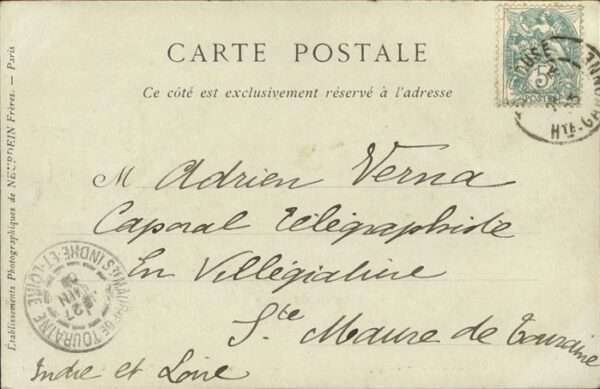 CARTE POSTALE
Ce côté est exclusivement réservé à l'adresse
M Adrien Verna
Caporal télégraphiste
En Villégiature
Ste Maure de Touraine
Indre et Loire
Établissements Photographiques de NEURDEIN Frères. — Paris
5
POSTES
HTE-GARONNE
MAURE DE TOURAINE
INDRE-ET-LOIRE
27
JUIN